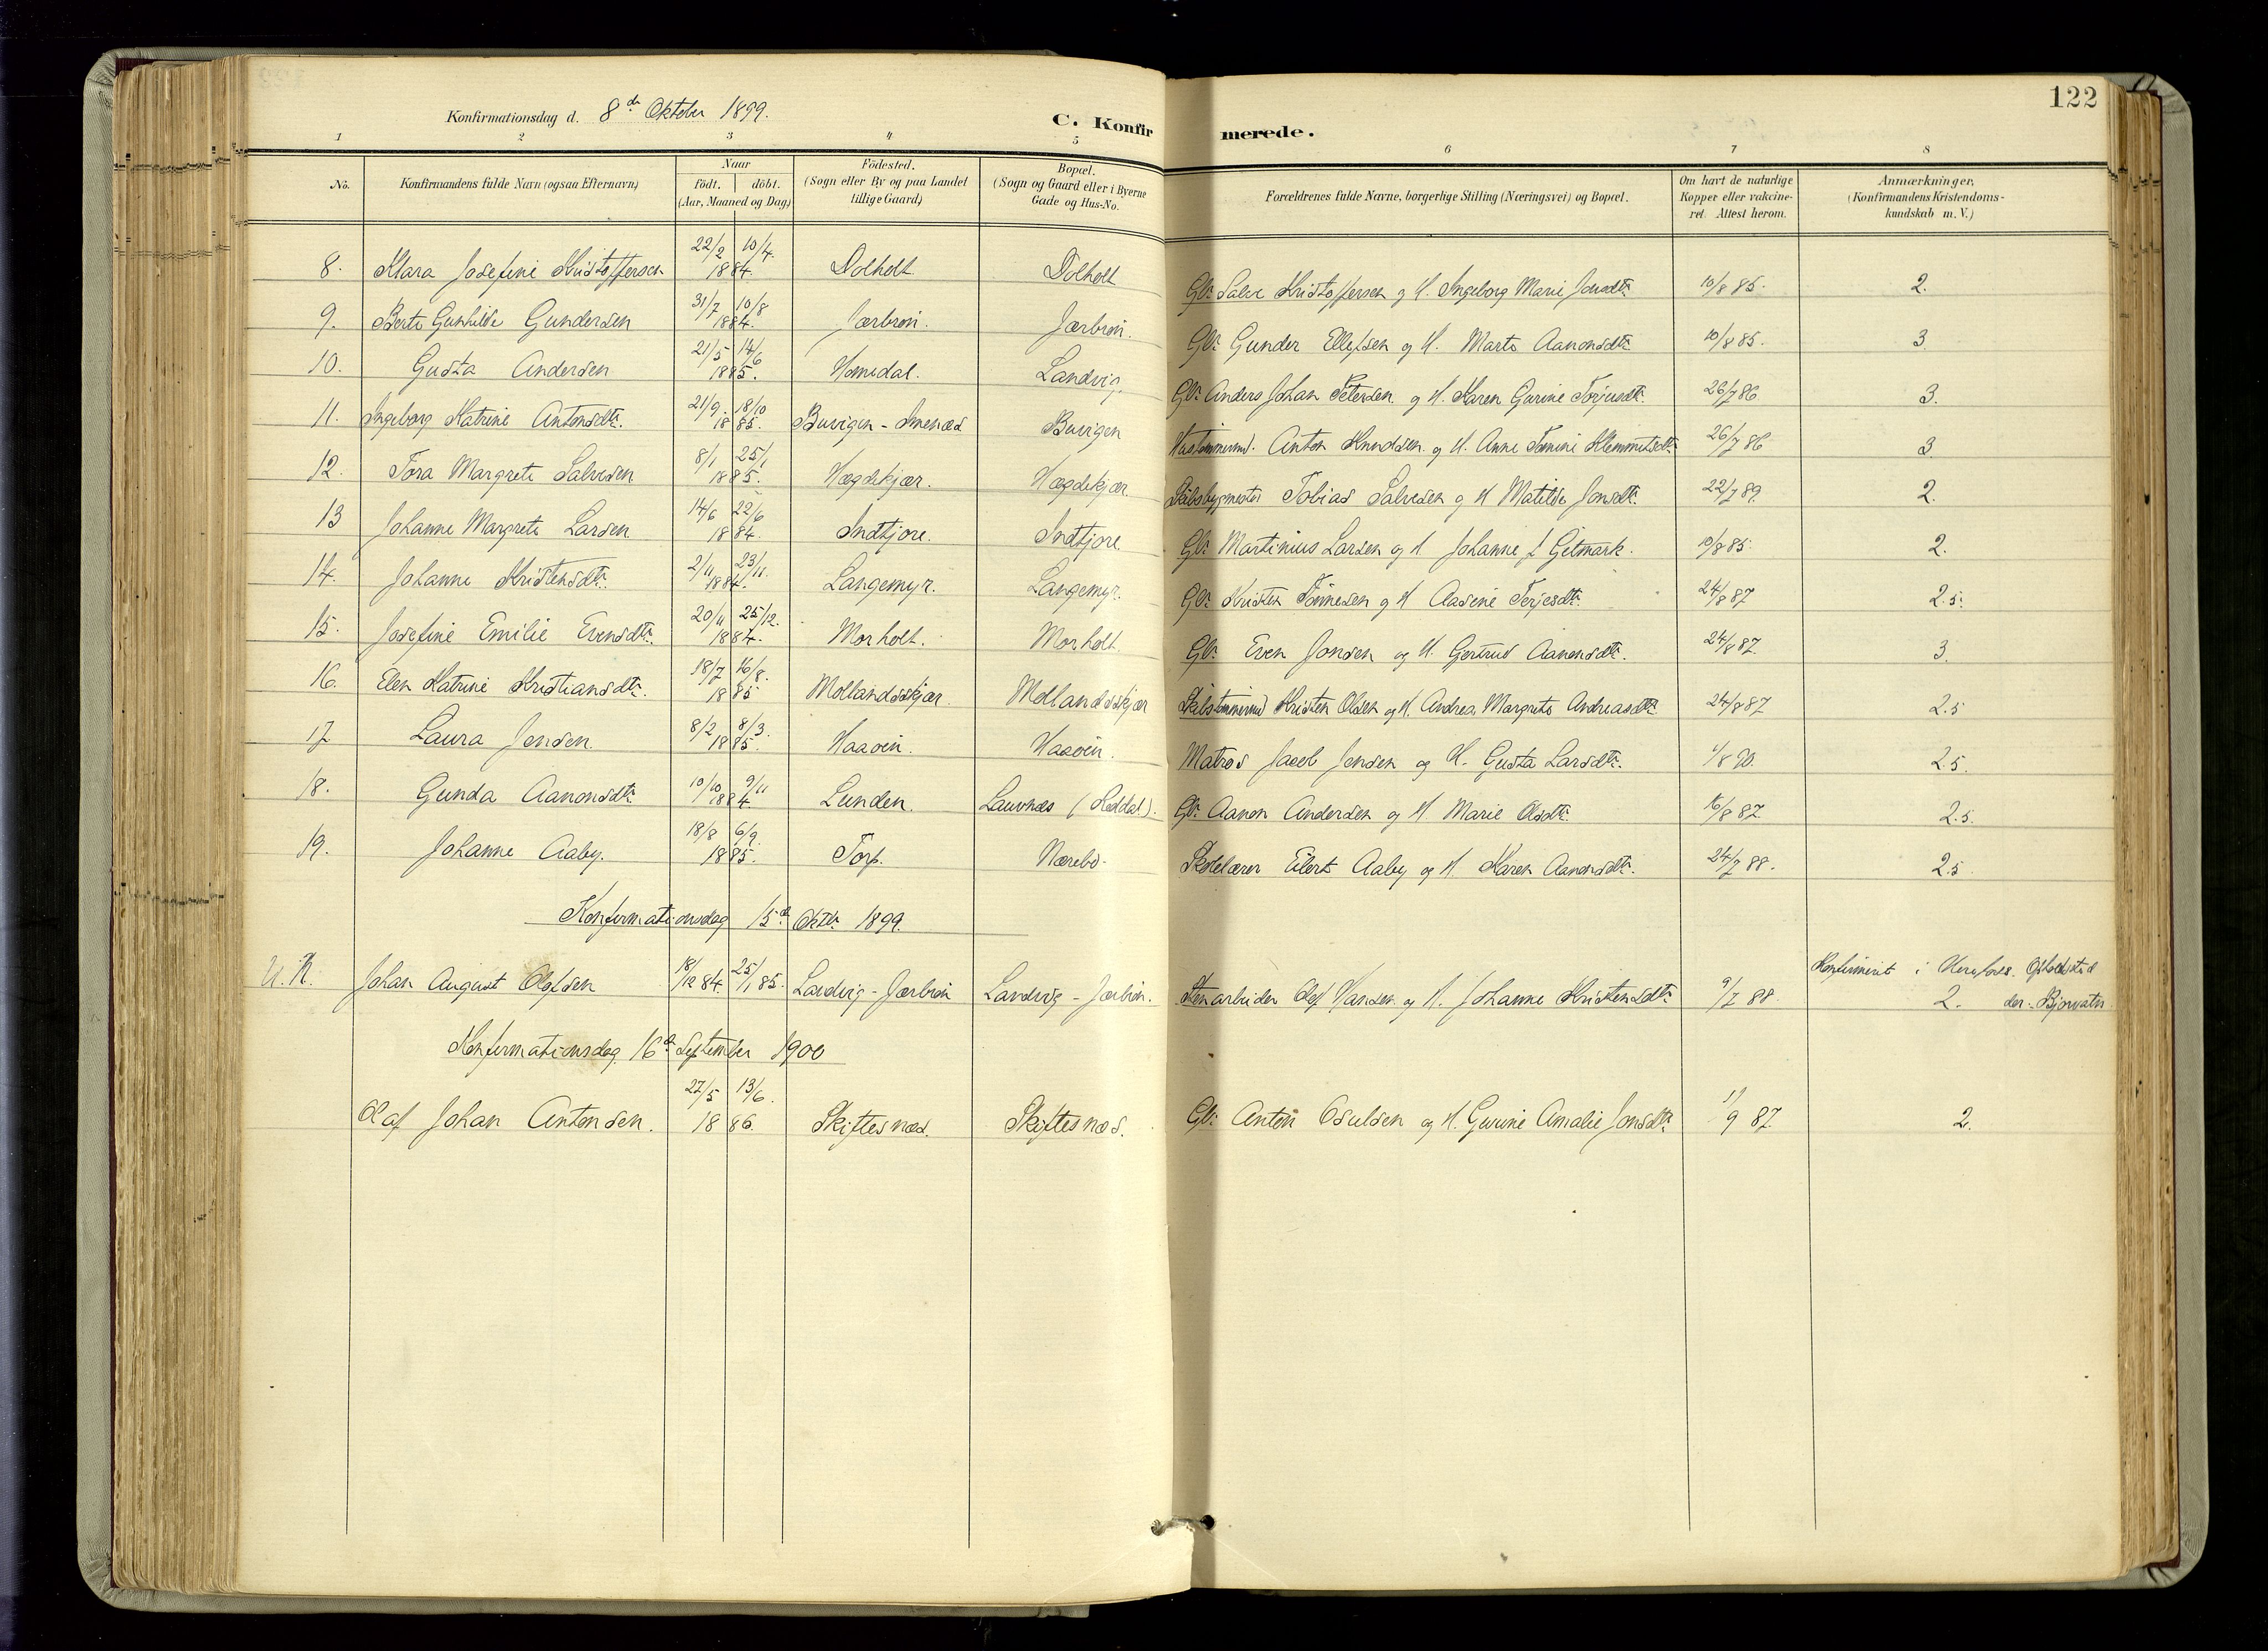 122
Konfirmationsdag d. 8de Oktober 1899.
C. Konfirmerede.
1 2 3 4 5 6 7 8
No. Konfirmandens fulde Navn (ogsaa Efternavn) Naar födt. döbt. (Aar, Maaned og Dag) Födested. (Sogn eller By og paa Landet tillige Gaard) Bopæl. (Sogn og Gaard eller i Byerne Gade og Hus-No. Forældrenes fulde Navne, borgerlige Stilling (Næringsvei) og Bopæl. Om havt de naturlige Kopper eller vakcineret. Attest herom. Anmærkninger, (Konfirmandens Kristendomskundskab m. V.)
8. Klara Josefine Kristoffersen 22/2 10/4 1884. Dolholt Dolholt Gbr. Salve Kristoffersen og H. Ingeborg Marie Jonsdtr. 10/8 85. 2.
9. Berte Gunhilde Gundersen 31/7 10/8 1884. Jærbrön. Jærbrön. Gbr. Gunder Ellefsen og H. Marte Aanonsdtr. 10/8 85. 3
10. Gusta Andersen 21/5 14/6 1885. Homedal. Landvig, Gbr. Anders Johan Petersen og H. Karen Gurine Torjusdtr. 26/7 86 3.
11. Ingeborg Katrine Antonsdtr. 21/9. 18/10 1885. Buvigen - Imenæs Buvigen Hustömmermd. Anton Knudsen og H. Anne Tomine Klemmetsdtr. 26/7 86 3
12. Tora Margrete Salvesen 8/1 25/1 1885. Hægdekjær. Hægdekjær. Skibsbygmester Tobias Salvesen og H Matilde Jonsdtr. 22/7 89. 2.
13 Johanne Margrete Larsen 14/6 22/6 1884. Indtjore. Indtjore Gbr. Martinius Larsen og H Johanne f Gitmark. 10/8 85. 2.
14. Johanne Kristensdtr. 2/11 23/11. 1884. Langemyr. Langemyr. Gbr. Kristen Tönnesen og H Aasine Terjesdtr. 24/8 87 2.5.
15. Josefine Emilie Evensdtr. 20/11 25/12. 1884. Morholt. Morholt. Gbr. Even Jonsen og H. Gertrud Aanonsdtr. 24/8 87. 3.
16. Elen Katrine Kristiansdtr. 18/7 16/8. 1885 Mollandsskjær Mollandsskjær Skibstömmermd Kristen Olsen og H. Andrea Margrete Andreasdtr. 24/8 87 2.5
17 Laura Jensen. 8/2 8/3. 1885. Haaöen. Haaöen. Matros Jacob Jensen og H. Gusta Larsdtr. 1/8 90. 2.5.
18. Gunda Aanonsdtr. 10/10 9/11 1884 Lunden. Laurnæs (Heddal). Gbr. Aanon Andersen og H Marie Olsdtr. 16/8 87. 2.5.
19. Johanne Aaby. 18/8 6/9. 1885. Torp. Nærebö. Skolelærer Eilert Aaby og H. Karen Aanonsdtr. 24/7 88. 2.5
Konfirmationsdag 15de Oktbr. 1899.
U. N. Johan August Olafsen 18/12 84. 25/1 85. Landvig - Jærbrön Landvig - Jærbrön. Stenarbeider Olaf Hansen og H. Johanne Kristensdtr. 9/7 88. Konfirmeret i Herefoss. Opholdssted der: Bjorvatn 2.
Konfirmationsdag 16de September 1900
Olaf Johan Antonsen. 27/5 13/6. 1886. Skiftesnæs. Skiftesnæs. Gbr. Anton Osulsen og H. Gurine Amalie Jonsdtr. 11/9 87. 2.